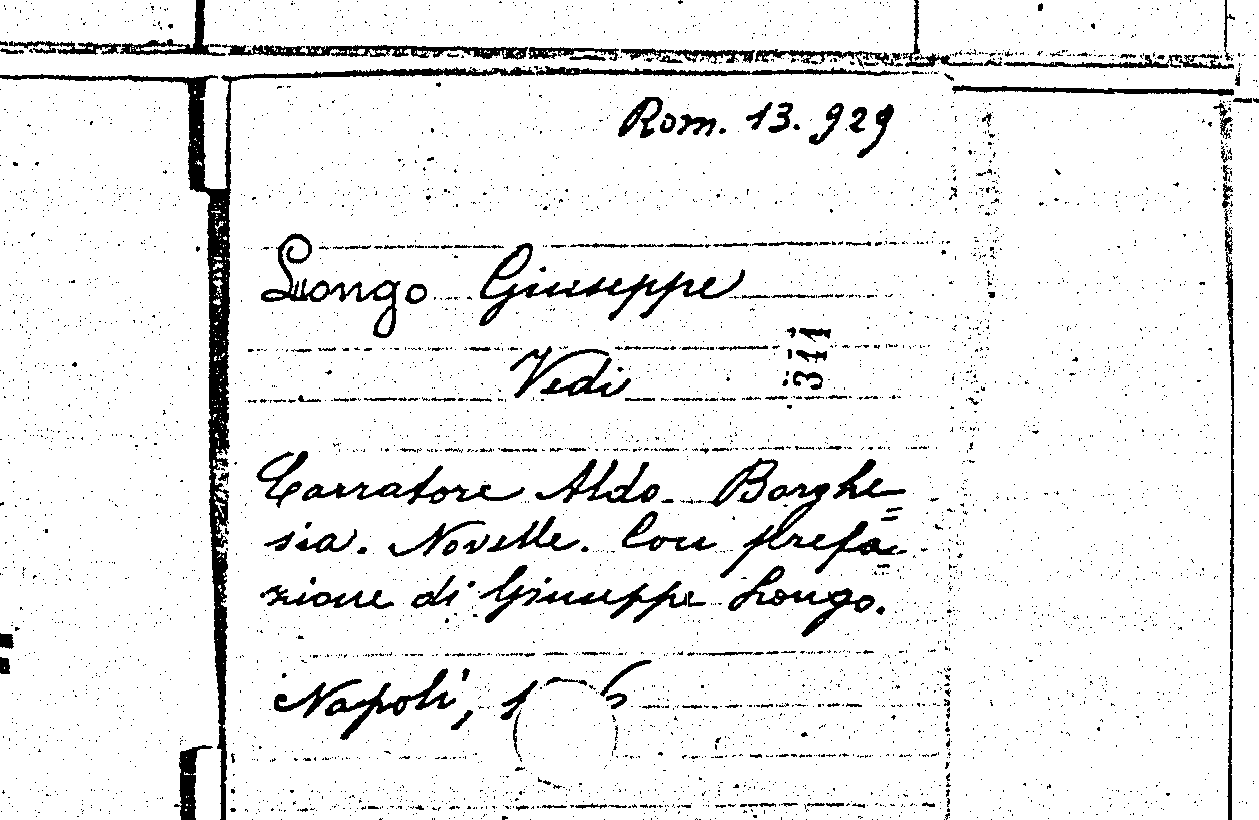 Rom. 13. 929
Longo Giuseppe
Vedi
311
Carratore Aldo. Borghe=
sia. Novelle. Con prefa=
zione di Giuseppe Longo.
Napoli,